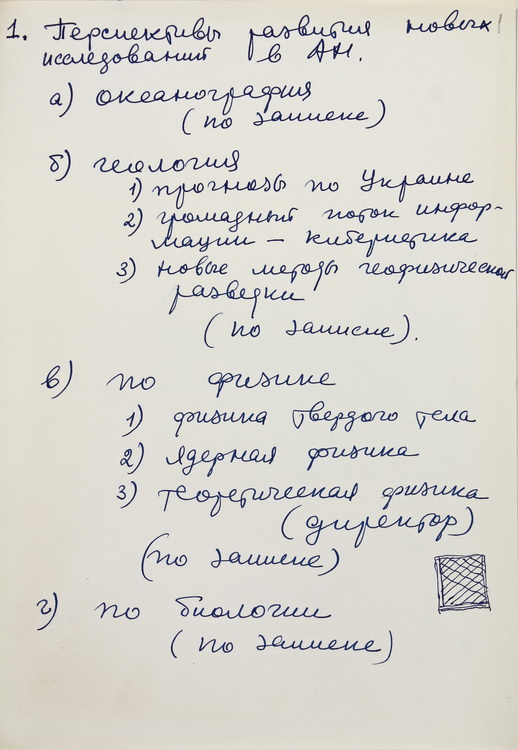 1. Перспективы развития новых
исследований в АН.
а) океанография
(по записке)
б) геология
1) прогнозы по Украине
2) громадный поток инфор-
мации – кибернетика
3) новые методы геофизической
разведки
(по записке).
в) по физике
1) физика твердого тела
2) ядерная физика
3) теоретическая физика
(директор)
(по записке)
г) по биологии
(по записке)